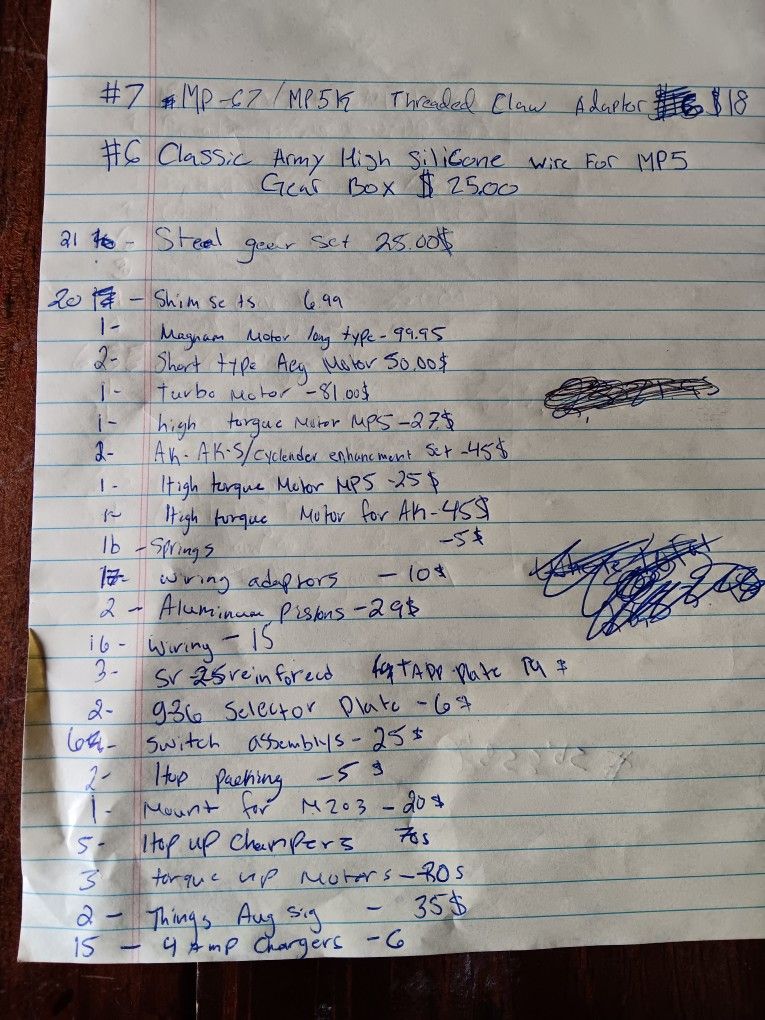 #7 MP-67/MP5K Threaded Claw Adaptor $18
#6 Classic Army High Silicone wire For MP5
Gear Box $ 25.00
21 - Steel gear set 25.00$
20 - Shim sets 6.99
1- Magnam Motor long type - 99.95
2- Short type Aeg Motor 50.00$
1- Turbo Motor - 81.00$
1- high torque Motor MP5 - 27$
2- AK- AK-S/Cyclender enhancment Set - 45$
1- High torque Motor MP5 - 25$
1- High torque Motor for AK - 45$
16 - Springs - 5$
17- wiring adaptors - 10$
2 - Aluminum Pistons - 29$
16 - Wiring - 15
3- Sr 25 reinforecd plate
2- g36 Selector Plate - 6$
6 - Switch assemblys - 25$
2- Hop packing - 5$
1- Mount for M203 - 20$
5- Hop up Champers
3 torque up Motors -
2 - Things Aug Sig - 35$
15 - 4 Amp Chargers - 6